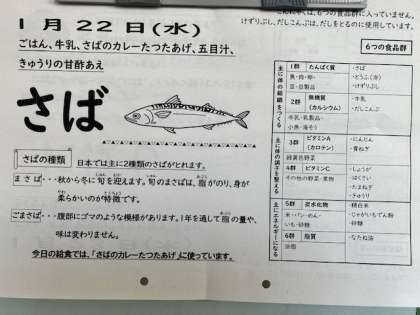 1月22日(水)
ごはん、牛乳、さばのカレーたつたあげ、五目汁、
きゅうりの甘酢あえ
さば
さばの種類
日本では主に2種類のさばがとれます。
まさば・・・秋から冬に旬を迎えます。旬のまさばは、脂がのり、身が
柔らかいのが特徴です。
ごまさば・・・腹部にゴマのような模様があります。1年を通して脂の量や、
味は変わりません。
今日の給食では、「さばのカレーたつたあげ」に使っています。
は、6つの食品群に入っていません。
けずりぶし、だしこんぶは、だしをとるのに使用しています。
6つの食品群
主に体の組織をつくる
1群 たんぱく質
魚・肉・卵・
豆・豆製品
・さば
・とうふ(冷)
・けずりぶし
2群 無機質
(カルシウム)
牛乳・乳製品・
小魚・海そう
・牛乳
・だしこんぶ
主に体の調子を整える
3群 ビタミンA
(カロテン)
緑黄色野菜
・にんじん
・青ねぎ
4群 ビタミンC
その他の野菜・果物
・しょうが
・はくさい
・たまねぎ
・きゅうり
主にエネルギーになる
5群 炭水化物
米・パン・めん・
いも・砂糖
・精白米
・じゃがいもでん粉
・砂糖
6群 脂質
油脂
・なたね油